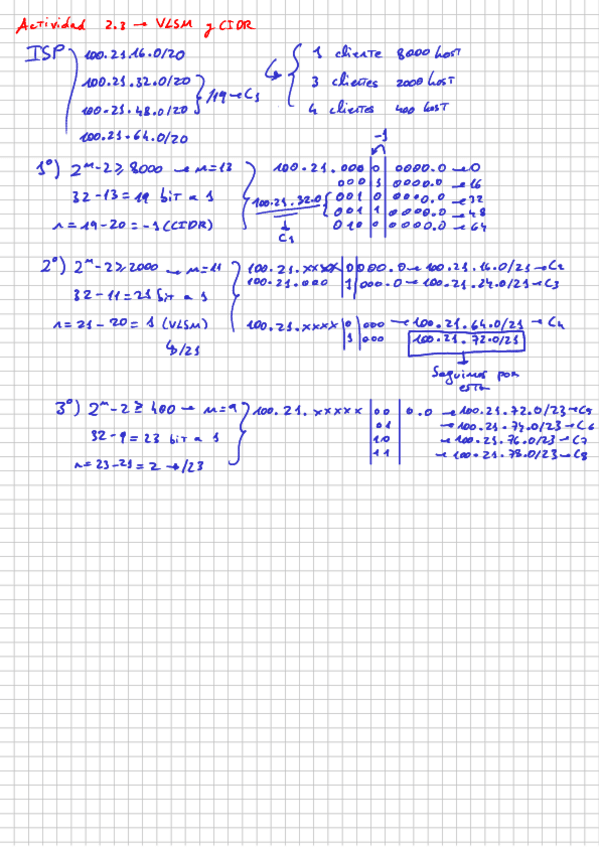 Actividad 2.3 → VLSM y CIDR
ISP
100.21.16.0/20
100.21.32.0/20
100.21.48.0/20
100.21.64.0/20
/19 → C1
1 cliente 8000 host
3 clientes 2000 host
4 clientes 400 host
1º) 2^m-2 ≥ 8000 → m=13
32-13 = 19 bit a 1
n = 19-20 = -1 (CIDR)
-1
100.21.000 | 0 | 0000.0 → 0
000 | 1 | 0000.0 → 16
100.21.32.0 { 001 | 0 | 0000.0 → 32
001 | 1 | 0000.0 → 48
C1
010 | 0 | 0000.0 → 64
2º) 2^m-2 ≥ 2000 → m=11
32-11 = 21 bit a 1
n = 21-20 = 1 (VLSM)
↳ /21
100.21.xxxx | 0 | 000.0 → 100.21.16.0/21 → C2
100.21.000 | 1 | 000.0 → 100.21.24.0/21 → C3
100.21.xxxx | 0 | 000 → 100.21.64.0/21 → C4
1 | 000 100.21.72.0/21
Seguimos por
esta
3º) 2^m-2 ≥ 400 → m=9
32-9 = 23 bit a 1
n = 23-21 = 2 → /23
100.21.xxxxx | 00 | 0.0 → 100.21.72.0/23 → C5
01 → 100.21.74.0/23 → C6
10 → 100.21.76.0/23 → C7
11 → 100.21.78.0/23 → C8